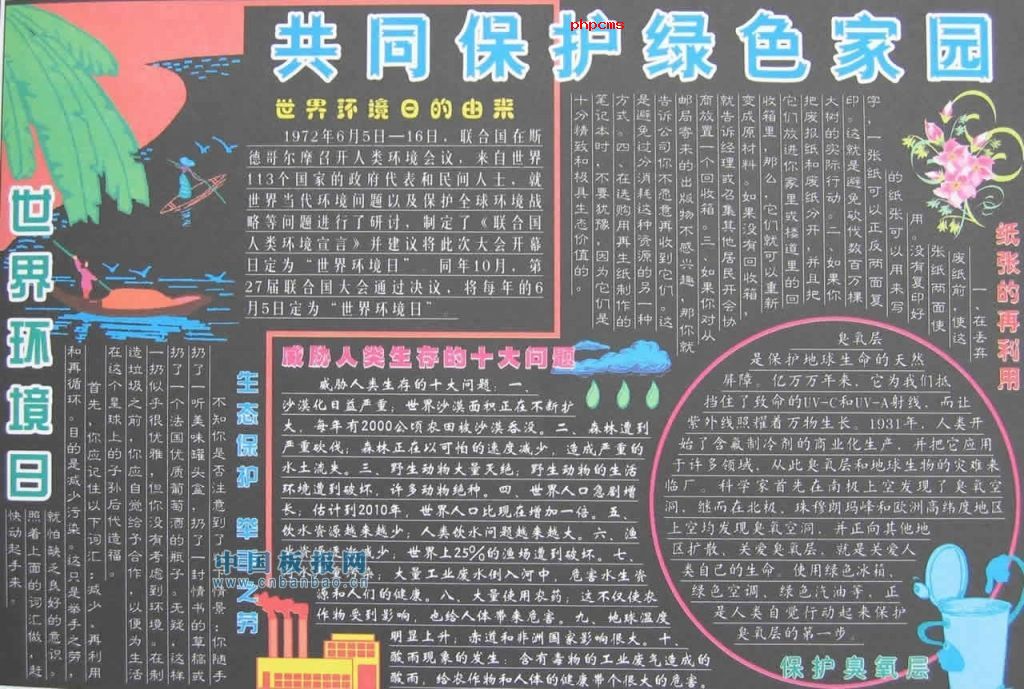 共同保护绿色家园
phpcms
世界环境日的由来
1972年6月5日—16日，联合国在斯
德哥尔摩召开人类环境会议，来自世界
113个国家的政府代表和民间人士，就
世界当代环境问题以及保护全球环境战
略等问题进行了研讨，制定了《联合国
人类环境宣言》并建议将此次大会开幕
日定为“世界环境日” 同年10月，第
27届联合国大会通过决议，将每年的6
月5日定为“世界环境日”
纸张的再利用
一、在丢弃
废纸前，使这
张纸两面使
用。没有复印好
的纸张可以用来写
字，一张纸可以正反两面复
印。这就是避免砍伐数百万棵
大树的实际行动。二、如果你
把废报纸和废纸分开，并且把
它们放进你家里或楼道里的回
收箱里，那么，它们就可以重新
变成原材料。如果没有回收箱，
就告诉经理或召集其他居民开会协
商放置一个回收箱。三、如果你对从
邮局寄来的出版物不感兴趣，那你就
告诉公司你不愿意再收到它们。这
是避免过分消耗这种资源的另一种
方式。四、在选购用再生纸制作的
笔记本时，不要犹豫，因为它们是
十分精致和极具生态价值的。
世界环境日
威胁人类生存的十大问题
威胁人类生存的十大问题：一、
沙漠化日益严重；世界沙漠面积正在不断扩
大，每年有2000公顷农田被沙漠吞没。二、森林遭到
严重砍伐；森林正在以可怕的速度减少，造成严重的
水土流失。三、野生动物大量灭绝；野生动物的生活
环境遭到破坏，许多动物绝种。四、世界人口急剧增
长；估计到2010年，世界人口比现在增加一倍。五、
饮水资源越来越少；人类饮水问题越来越大。六、渔
减少；世界上25%的渔场遭到破坏。七、
大量工业废水倒入河中，危害水生资
源和人们的健康。八、大量使用农药；这不仅使农
作物受到影响，也给人体带来危害。九、地球温度
明显上升；赤道和非洲国家影响很大。十、
酸雨现象的发生；含有毒物的工业废气造成的
酸雨，给农作物和人体的健康带个很大的危害。
臭氧层
是保护地球生命的天然
屏障。亿万万年来，它为我们抵
挡住了致命的UV-C和UV-A射线，而让
紫外线照耀着万物生长。1931年，人类开
始了含氟制冷剂的商业化生产，并把它应用
于许多领域，从此臭氧层和地球生物的灾难来
临厂。科学家首先在南极上空发现了臭氧空
洞，继而在北极、珠穆朗玛峰和欧洲高纬度地区
上空均发现臭氧空洞，并正向其他地
区扩散、关爱臭氧层，就是关爱人
类自己的生命。使用绿色冰箱、
绿色空调、绿色汽油等，正
是人类自觉行动起来保护
臭氧层的第一步。
保护臭氧层
生态保护 举手之劳
不知你是否注意到了 情景：你随手
扔了一听美味罐头盒，扔了一封情书的草稿或
扔了一个法国优质葡萄酒的瓶子。无疑，这样
一扔似乎很优雅，但你没有考虑到环境。在制
造垃圾之前，你应自觉给予合作，以便为生活
在这个星球上的子孙后代造福。
首先，你应记住以下词汇：减少，再利用
和再循环。目的是减少污染。这只是举手之劳，
就怕缺乏良好的意识。
照着上面的词汇做，赶
快动起手来。
中国板报网
www.cnbanbao.cn